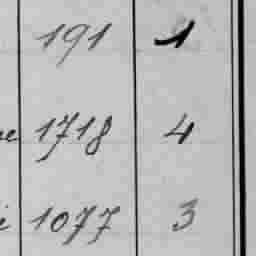 191 1
1718 4
1077 3